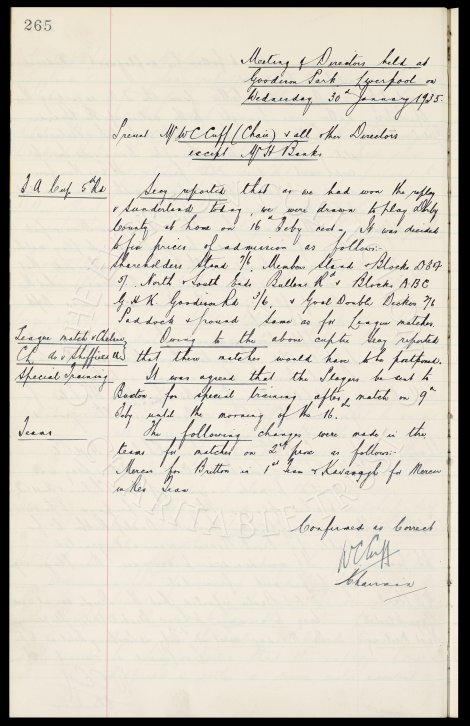 265
Meeting of Directors held at
Goodison Park Liverpool on
Wednesday 30th January 1935.
Present Mr WC Cuff (Chair) & all other Directors
except Mr H Banks
F A Cup 5th Rd Secy reported that as we had won the replay
v Sunderland today, we were drawn to play Derby
County at home on 16th Feby next. It was decided
to fix prices of admission as follows:-
Shareholders Stand 7/6, Members Stand & Blocks D E F
5/. North & South Ends Bullens Rd & Blocks A B C
G H K Goodison Rd 3/6, & Goal Double Decker 2/6
Paddock & ground same as for League matches.
League match v Chelsea Owing to the above cuptie Secy reported
CL do v Sheffield U. that these matches would have to be postponed.
Special Training It was agreed that the Players be sent to
Buxton for special training after match on 9th
Feby until the morning of the 16th.
Teams The following changes were made in the
teams for matches on 2nd prox as follows:-
Mercer for Britton in 1st Team & Kavanagh for Mercer
in Res Team
CHARITABLE TR
Confirmed as Correct
WC Cuff
Chairman